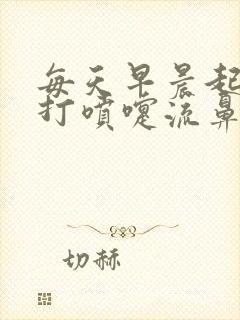 每天早晨起
打喷嚏流鼻
切赫